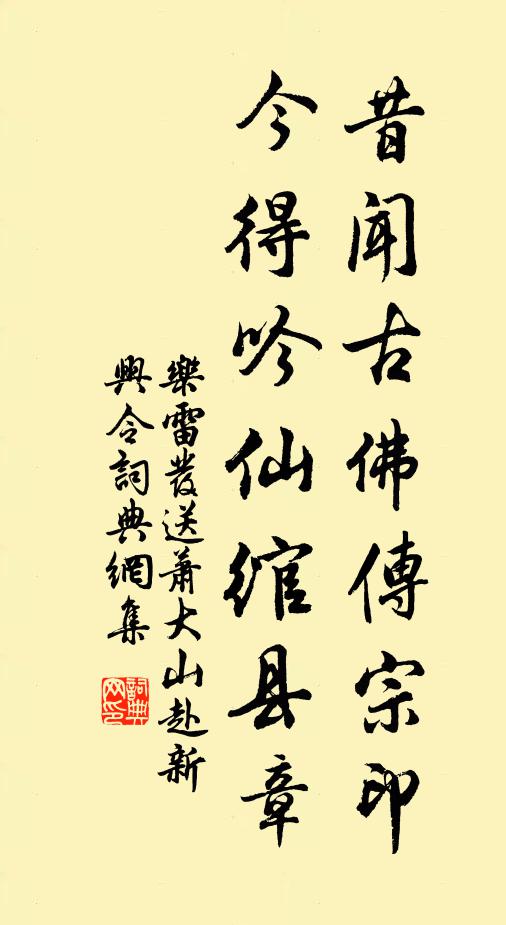 昔聞古佛傳宗印
今得吟仙綰县章
樂雷發送萧大山赴新
興令詞典網集
詞典
网印